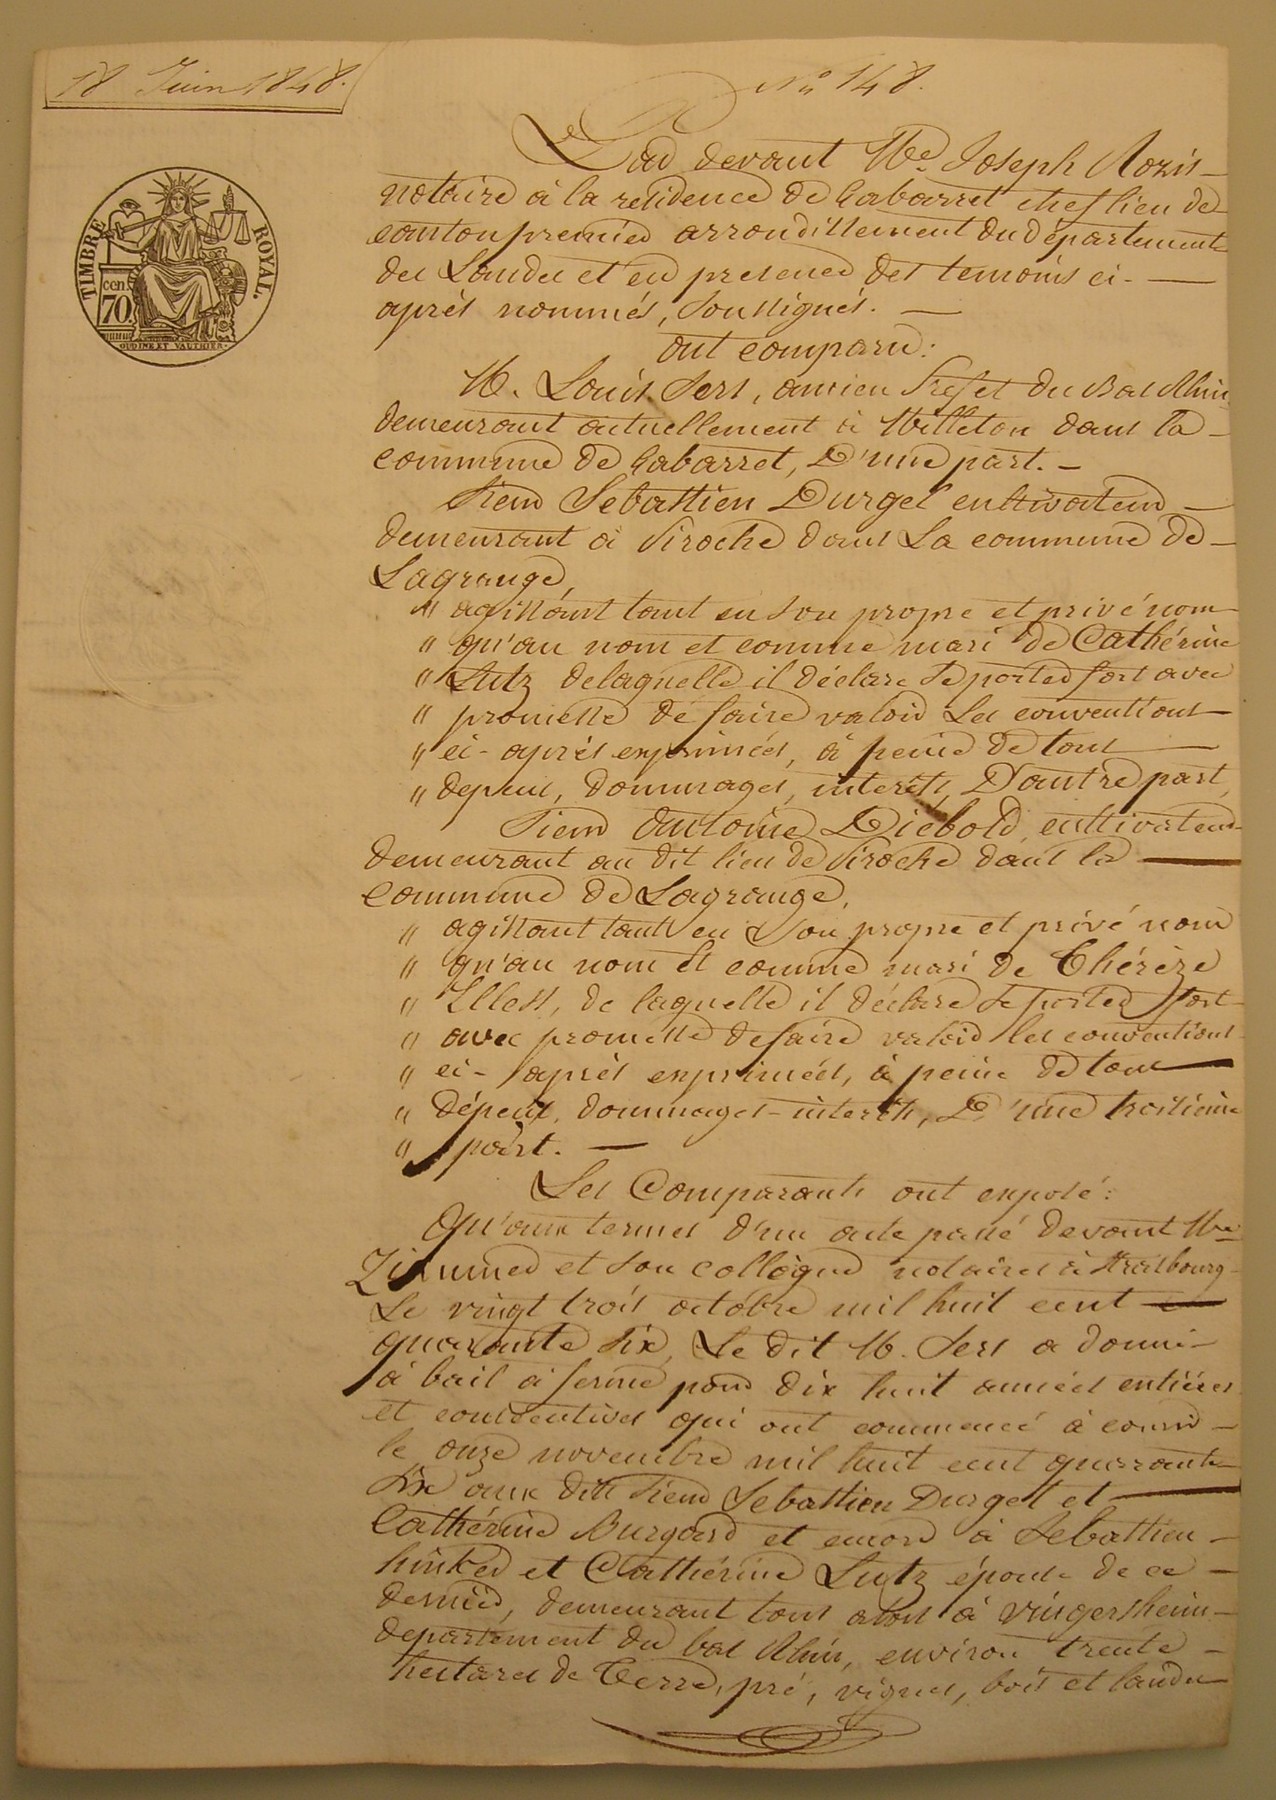 18 Juin 1848.
N° 148.
TIMBRE ROYAL.
cen.
70.
OUDINE ET VAUTHIER.
Par devant Me Joseph Rozis
notaire à la residence de Gabarret chef lieu de
canton premier arrondissement du département
des Landes et en presence des temoins ci-
après nommés, soussignés.
ont comparu:
M. Louis Sers, ancien Prefet du Bas Rhin
demeurant actuellement à Milleton dans la
commune de Gabarret, D'une part.
Sieur Sebastien Durget cultivateur
demeurant à Piroche dans La commune de
Lagrange,
" agissant tant en son propre et privé nom
" qu'au nom et comme mari de Cathérine
" Lutz de laquelle il déclare se porter fort avec
" promesse de faire valoir Les conventions
" ci-après exprimées, à peine de tous
" depens, dommages, interêts, D'autre part,
Sieur Antoine Diebold, cultivateur
demeurant au dit lieu de Piroche dans la
commune de Lagrange,
" agissant tant en son propre et privé nom
" qu'au nom et comme mari de Thérèze
" Illess, de laquelle il déclare se porter fort
" avec promesse de faire valoir les conventions
" ci-après exprimées, à peine de tous
" dépens, dommages-interêts, D'une troisième
" part.
Les Comparants ont exposé:
Qu'aux termes d'un acte passé devant Me
Zimmer et son collègue notaires à Strasbourg
Le vingt trois octobre mil huit cent
quarante six, Le dit M. Sers a donné
à bail à ferme pour dix huit années entières
et consecutives qui ont commencé à courir
le onze novembre mil huit cent quarante
six aux dits Sieur Sebastien Durget et
Cathérine Burgard et encore à Sebastien
hinker et Cathérine Lutz épouse de ce
dernier, demeurant tous alors à vingersheim
departement du bas Rhin, environ trente
hectares de Terre, pré, vignes, bois et landes